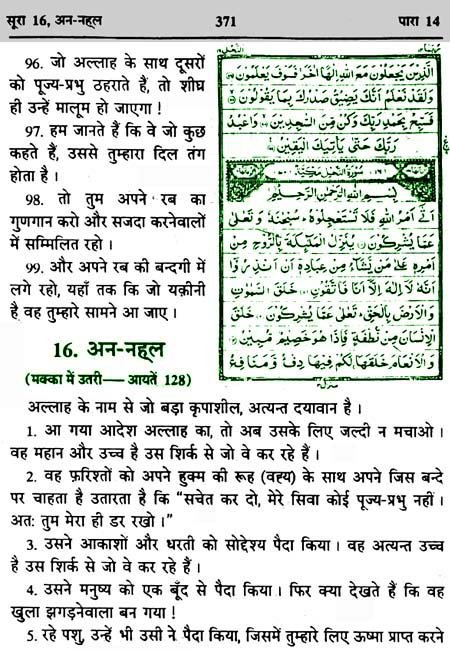 सूरा 16, अन-नह्ल 371 पारा 14
96. जो अल्लाह के साथ दूसरों
को पूज्य-प्रभु ठहराते हैं, तो शीघ्र
ही उन्हें मालूम हो जाएगा !
97. हम जानते हैं कि वे जो कुछ
कहते हैं, उससे तुम्हारा दिल तंग
होता है ।
98. तो तुम अपने रब का
गुणगान करो और सजदा करनेवालों
में सम्मिलित रहो ।
99. और अपने रब की बन्दगी में
लगे रहो, यहाँ तक कि जो यक़ीनी
है वह तुम्हारे सामने आ जाए ।
الَّذِيْنَ يَجْعَلُوْنَ مَعَ اللهِ اِلٰهًا اٰخَرَ فَسَوْفَ يَعْلَمُوْنَ
وَلَقَدْ نَعْلَمُ اَنَّكَ يَضِيْقُ صَدْرُكَ بِمَا يَقُوْلُوْنَ
فَسَبِّحْ بِحَمْدِ رَبِّكَ وَكُنْ مِّنَ السّٰجِدِيْنَ وَاعْبُدْ
رَبَّكَ حَتّٰى يَاْتِيَكَ الْيَقِيْنُ
سُوْرَةُ النَّحْلِ مَكِّيَّةٌ
بِسْمِ اللهِ الرَّحْمٰنِ الرَّحِيْمِ
اَتٰٓى اَمْرُ اللهِ فَلَا تَسْتَعْجِلُوْهُ سُبْحٰنَهٗ وَتَعٰلٰى
عَمَّا يُشْرِكُوْنَ يُنَزِّلُ الْمَلٰٓئِكَةَ بِالرُّوْحِ مِنْ
اَمْرِهٖ عَلٰى مَنْ يَّشَآءُ مِنْ عِبَادِهٖٓ اَنْ اَنْذِرُوْٓا
اَنَّهٗ لَآ اِلٰهَ اِلَّآ اَنَا فَاتَّقُوْنِ خَلَقَ السَّمٰوٰتِ
وَالْاَرْضَ بِالْحَقِّ تَعٰلٰى عَمَّا يُشْرِكُوْنَ خَلَقَ
الْاِنْسَانَ مِنْ نُّطْفَةٍ فَاِذَا هُوَ خَصِيْمٌ مُّبِيْنٌ
وَالْاَنْعَامَ خَلَقَهَا لَكُمْ فِيْهَا دِفْءٌ وَّمَنَافِعُ
16. अन-नह्ल
(मक्का में उतरी— आयतें 128)
अल्लाह के नाम से जो बड़ा कृपाशील, अत्यन्त दयावान है ।
1. आ गया आदेश अल्लाह का, तो अब उसके लिए जल्दी न मचाओ ।
वह महान और उच्च है उस शिर्क से जो वे कर रहे हैं ।
2. वह फ़रिश्तों को अपने हुक्म की रूह (वह्य) के साथ अपने जिस बन्दे
पर चाहता है उतारता है कि “सचेत कर दो, मेरे सिवा कोई पूज्य-प्रभु नहीं ।
अतः तुम मेरा ही डर रखो ।”
3. उसने आकाशों और धरती को सोद्देश्य पैदा किया । वह अत्यन्त उच्च
है उस शिर्क से जो वे कर रहे हैं ।
4. उसने मनुष्य को एक बूँद से पैदा किया । फिर क्या देखते हैं कि वह
खुला झगड़नेवाला बन गया !
5. रहे पशु, उन्हें भी उसी ने पैदा किया, जिसमें तुम्हारे लिए ऊष्मा प्राप्त करने